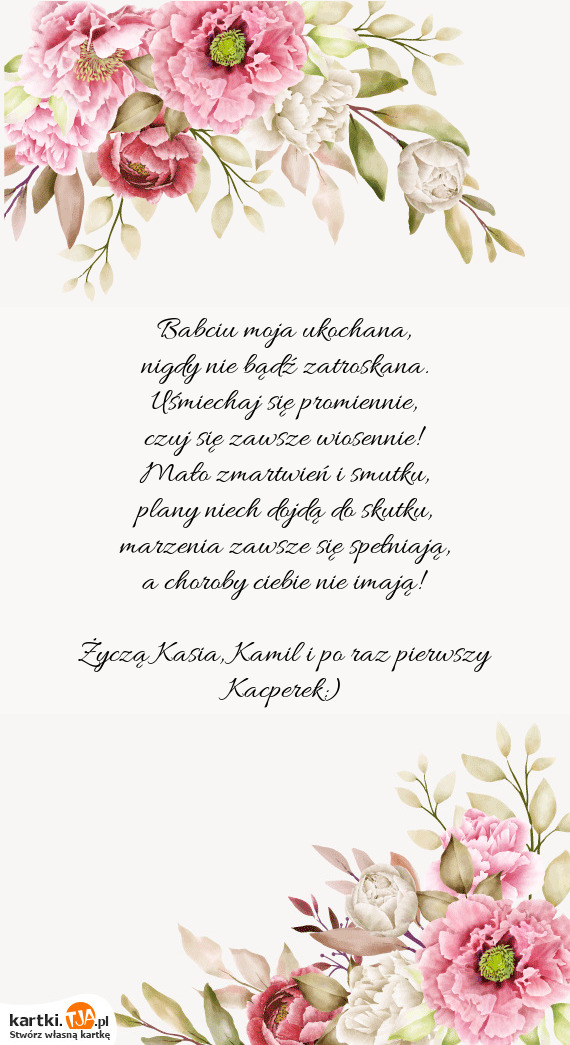 Babciu moja ukochana,
nigdy nie bądź zatroskana.
Uśmiechaj się promiennie,
czuj się zawsze wiosennie!
Mało zmartwień i smutku,
plany niech dojdą do skutku,
marzenia zawsze się spełniają,
a choroby ciebie nie imają!
Życzą Kasia, Kamil i po raz pierwszy
Kacperek:)
kartki.TJA.pl
Stwórz własną kartkę